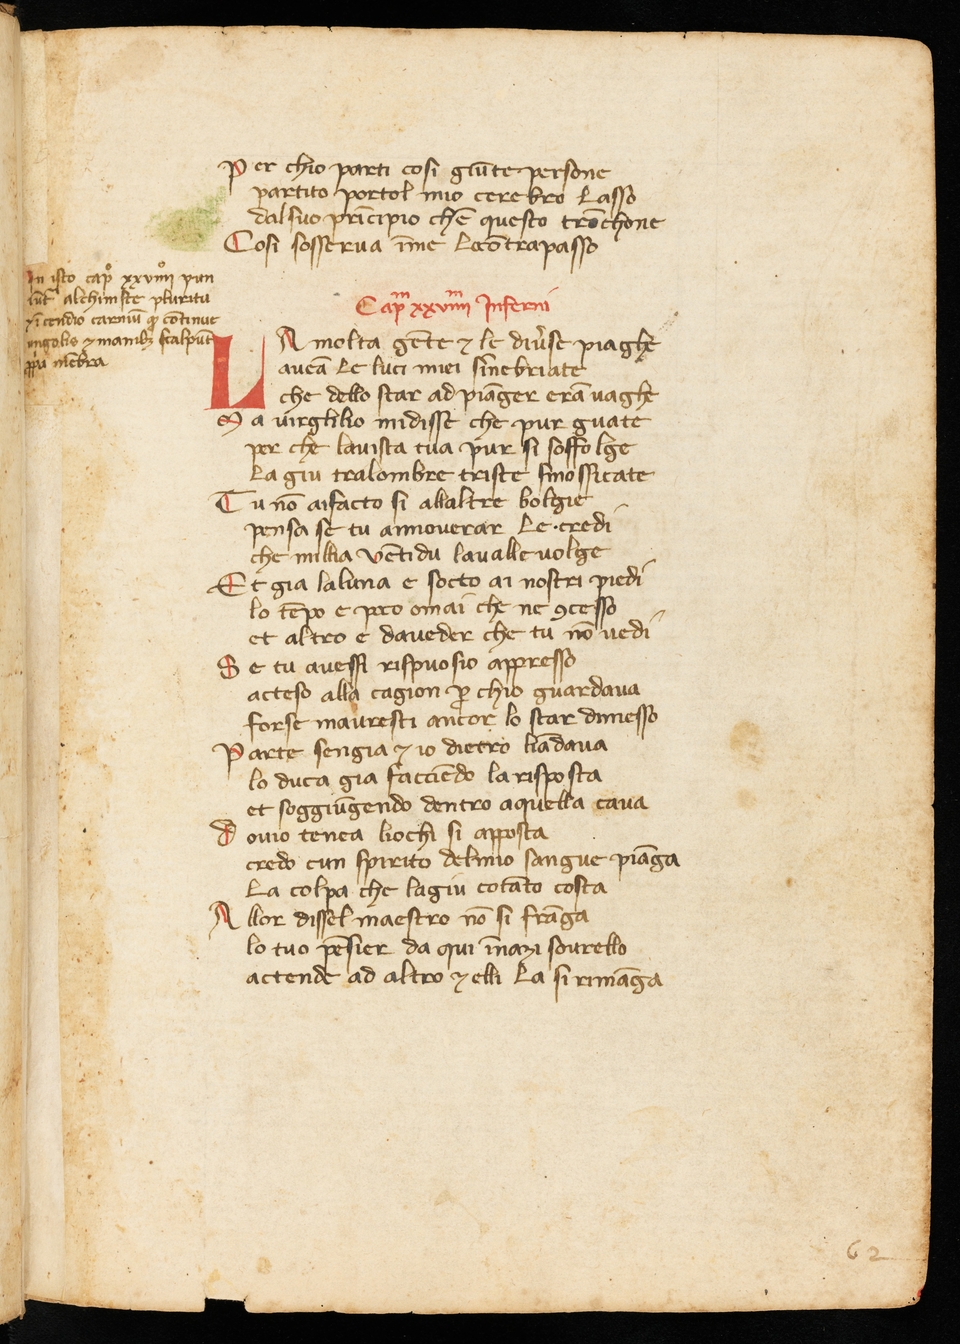 Per chio parti cosi giūte persone
partito portol mio cerebro lasso
dal suo prīcipio chē questo trōchone
Cosi sosserua īme lōcōtrapasso
In isto capͦ xxviiijͦ pun
iūt alchimiste pluritu
⁊ īcendio carniū ꝓ cōtinue
⁊ manibꝫ scalpūt
mēbra
Capᵐ xxviiijᵐ Inferni
LA molta gēte ⁊ le diu̓se piaghe
aueā le luci miei sīnebriate
che dello star ad piāger erā uaghe
Ma uirghilio midisse che pur guate
per che lauista tua pur si soffolge
la giu tralombre triste smossicate
Tu nō aifacto si allaltre bolgie
pensa se tu annouerar le credi
che millia vētidu laualle uolge
Et gia laluna e socto ai nostri piedi
lo tēpo e poco omai che ne ꝯcesso
et altro e daueder che tu nō uedi
Se tu auessi rispuosio appresso
acteso alla cagion ꝑ chio guardaua
forse mauresti ancor lo star dimesso
Parte sengia ⁊ io dietro liādaua
lo duca gia facciēdo larisposta
et soggiūgendo dentro aquella caua
Douio tenea liochi si apposta
credo cun spirito delmio sangue piāga
la colpa che lagiu cotāto costa
Allor dissel maestro nō si frāga
lo tuo pēsier da qui īnazi sourello
actende ad altro ⁊ elli la si rimāga
62